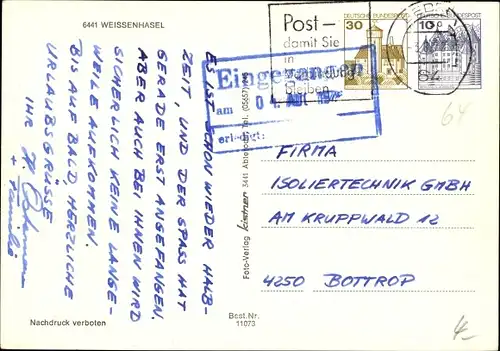 6441 WEISSENHASEL
ES IST SCHON WEDER HALB-
ZEIT, UND DER SPASS HAT
GERADE ERST ANGEFANGEN.
ABER AUCH BEI IHNEN WIRD
SICHERLICH KEINE LANGE-
WEILE AUFKOMMEN.
BIS AUF BALD, HERZLICHE
URLAUBSGRÜSSE
IHR
+ Familie
Nachdruck verboten
Best.Nr.
11073
Foto-Verlag kistner 3441 Abterode Tel. (05657)
Post –
damit Sie
in
Verbindung
bleiben
30
DEUTSCHE BUNDESPOST
10
DEUTSCHE BUNDESPOST
Eingegangen
am 0
erledigt:
64
FIRMA
ISOLIERTECHNIK GMBH
AM KRUPPWALD 12
4250 BOTTROP